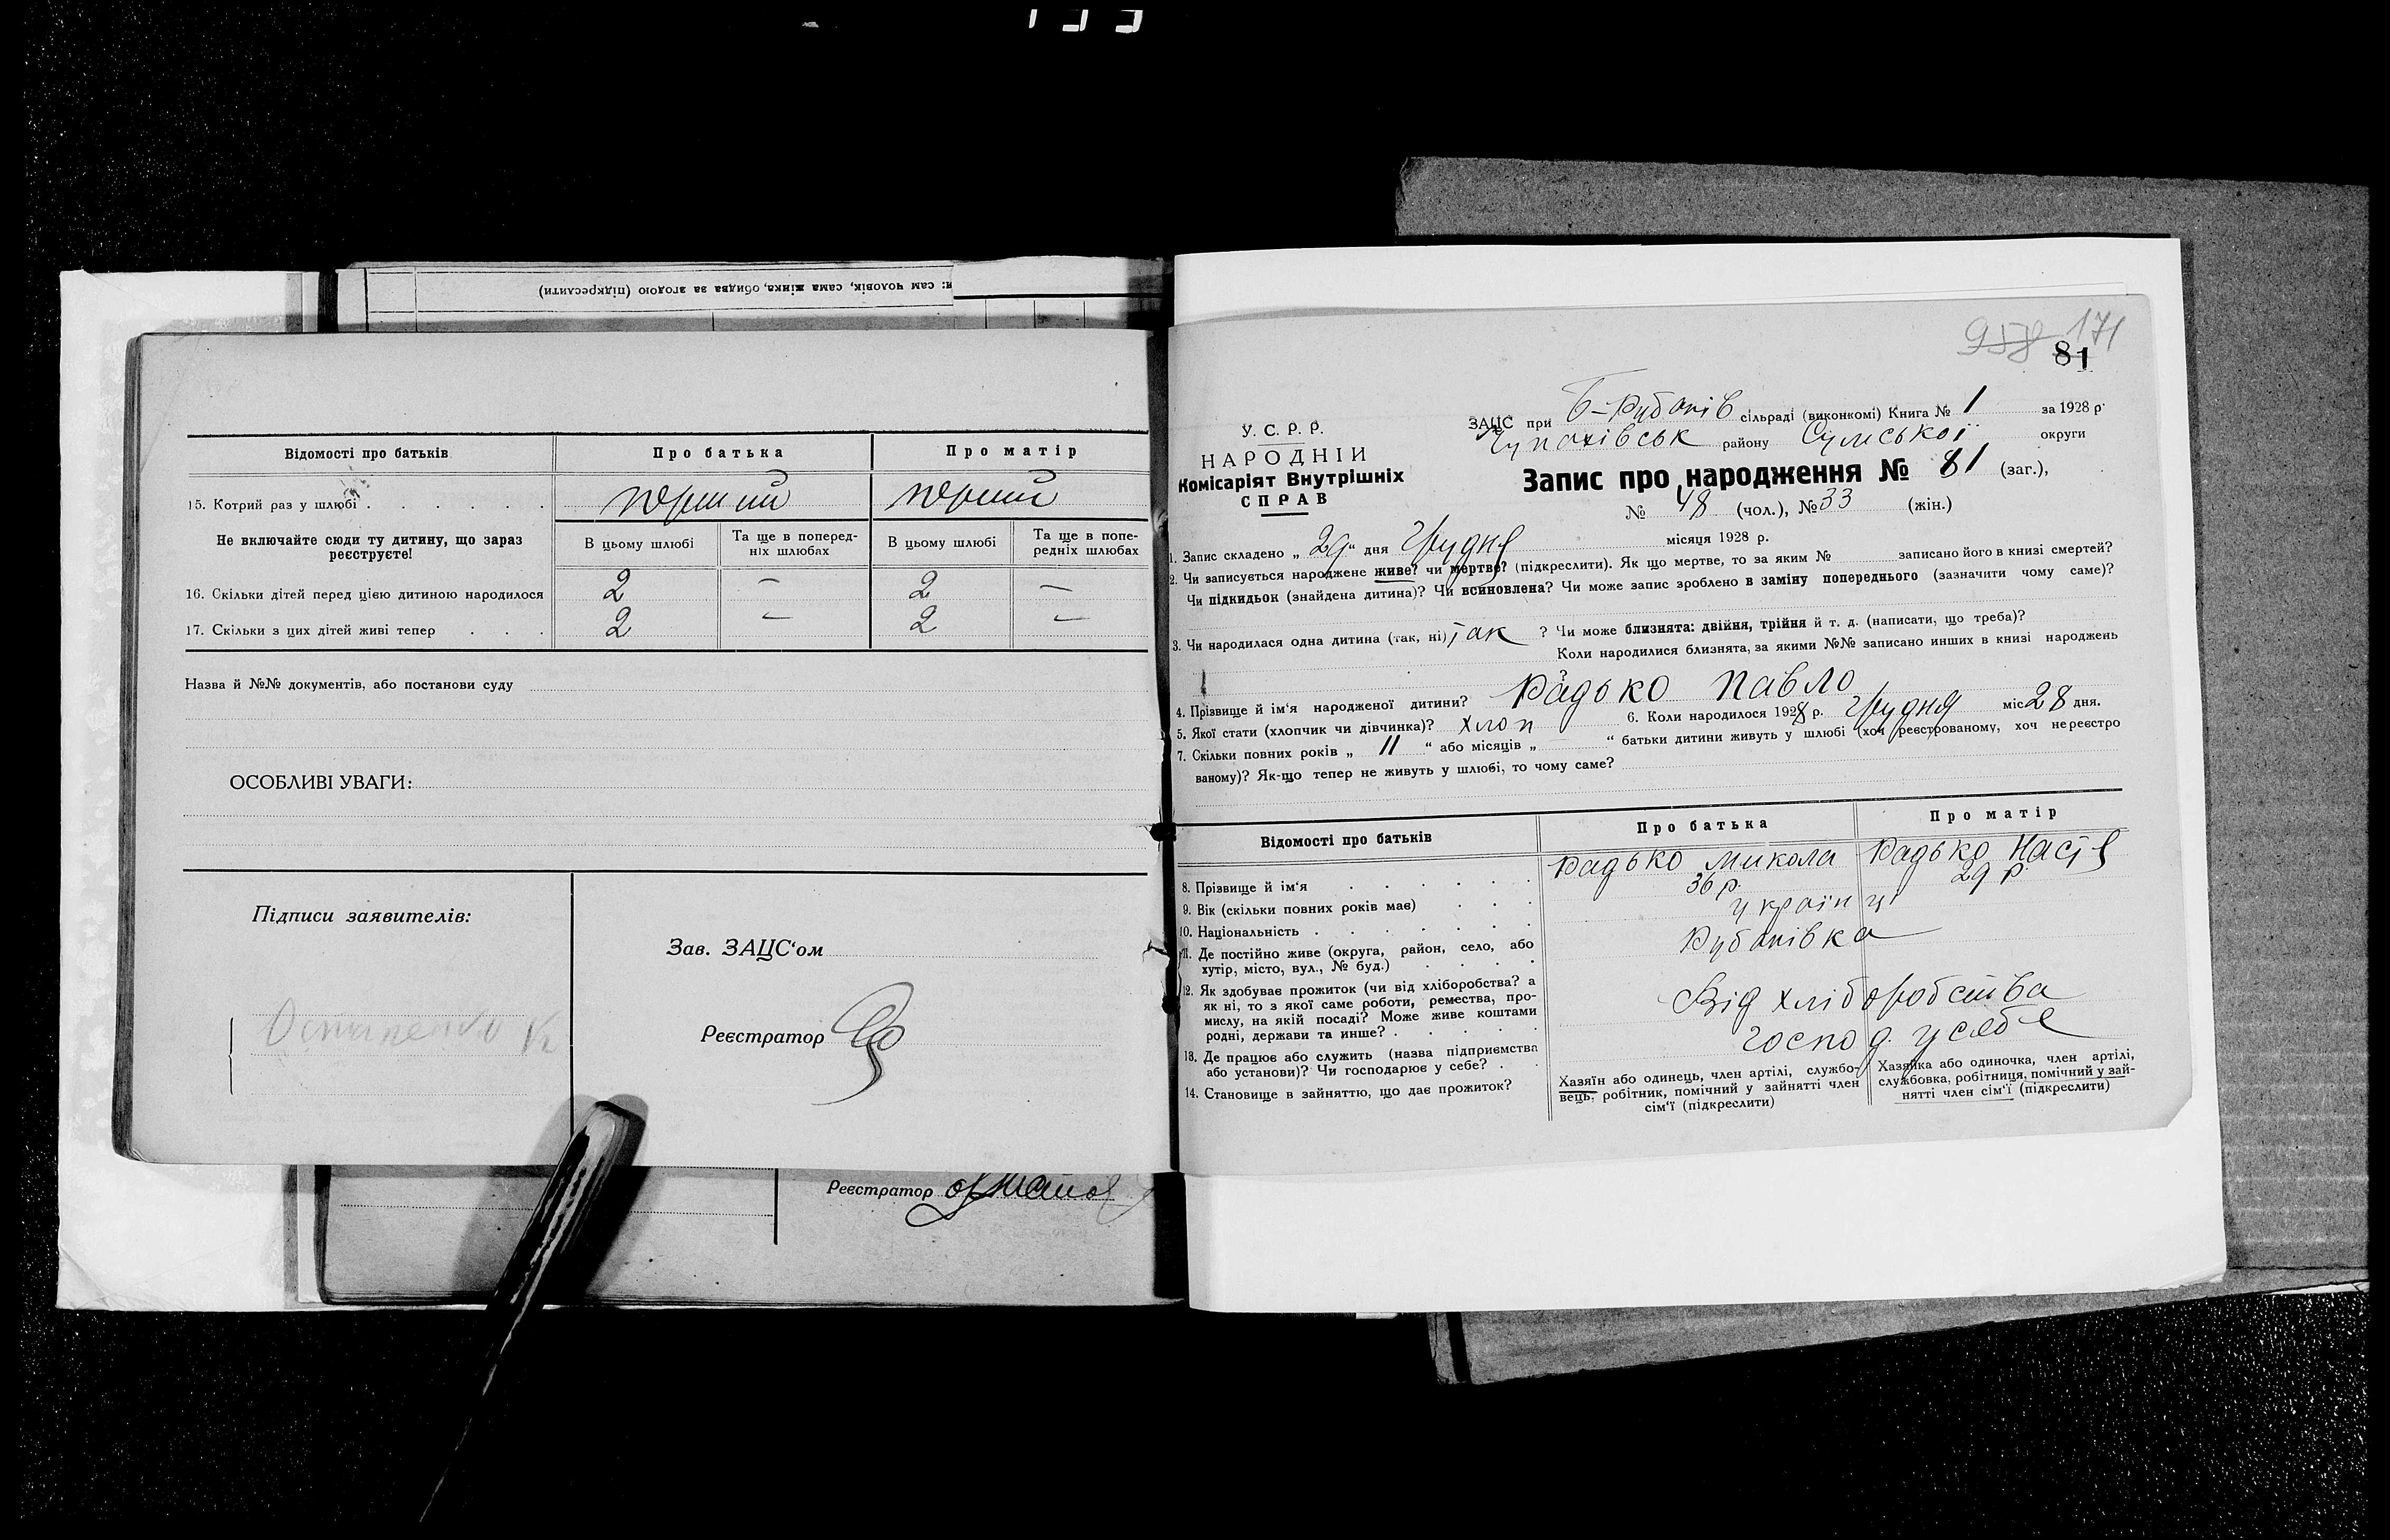 и: сам чоловік, сама жінка, обидва за згодою (підкреслити)
Відомості про батьків Про батька Про матір
15. Котрий раз у шлюбі . . . . . .
Не включайте сюди ту дитину, що зараз реєструєте!
В цьому шлюбі Та ще в поперед-ніх шлюбах В цьому шлюбі Та ще в попе-редніх шлюбах
16. Скільки дітей перед цією дитиною народилося 2 — 2 —
17. Скільки з цих дітей живі тепер . . . 2 — 2 —
Назва й №№ документів, або постанови суду
ОСОБЛИВІ УВАГИ:
Підписи заявителів:
Зав. ЗАЦС‘ом
Остапенко К
Реєстратор
Реєстратор
958 171
81
У. С. Р. Р.
НАРОДНІЙ
Комісаріят Внутрішніх
СПРАВ
ЗАЦС при Б-Рубанів сільраді (виконкомі) Книга № 1 за 1928 р.
Чупахівськ району Сумської округи
Запис про народження № 81 (заг.),
№ 48 (чол.), № 33 (жін.)
1. Запис складено „ 29 “ дня Грудня місяця 1928 р.
2. Чи записується народжене живе? чи мертве? (підкреслити). Як що мертве, то за яким № записано його в книзі смертей?
Чи підкидьок (знайдена дитина)? Чи всиновлена? Чи може запис зроблено в заміну попереднього (зазначити чому саме)?
3. Чи народилася одна дитина (так, ні) так ? Чи може близнята: двійня, трійня й т. д. (написати, що треба)?
Коли народилися близнята, за якими №№ записано инших в книзі народжень
?
4. Прізвище й ім‘я народженої дитини? Радько Павло
5. Якої стати (хлопчик чи дівчинка)? хлоп 6. Коли народилося 1928 р. Грудня міс 28 дня.
7. Скільки повних років „ 11 “ або місяців „ “ батьки дитини живуть у шлюбі (хоч реєстрованому, хоч нереєстро
ваному)? Як-що тепер не живуть у шлюбі, то чому саме?
Відомості про батьків Про батька Про матір
8. Прізвище й ім‘я . . . . . . Радько Микола Радько Настя
9. Вік (скільки повних років має) . . . 36 р. 29 р.
10. Національність . . . . . . українці
11. Де постійно живе (округа, район, село, або
хутір, місто, вул., № буд.) . . . . Рубанівка
12. Як здобуває прожиток (чи від хліборобства? а
як ні, то з якої саме роботи, ремества, про-
мислу, на якій посаді? Може живе коштами
родні, держави та инше? . . . . . Від хліборобства
13. Де працює або служить (назва підприємства
або установи)? Чи господарює у себе? . . господ. у себе
14. Становище в зайняттю, що дає прожиток?
Хазяїн або одинець, член артілі, службо-
вець, робітник, помічний у зайнятті член
сім‘ї (підкреслити)
Хазяйка або одиночка, член артілі,
службовка, робітниця, помічний у зай-
нятті член сім‘ї (підкреслити)